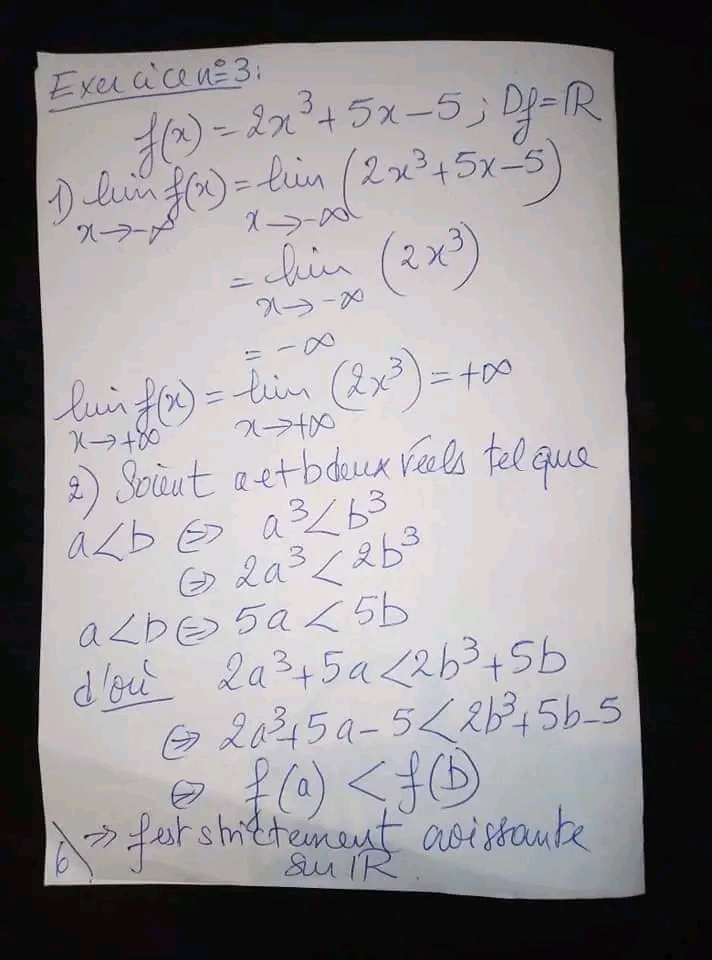 Exercice n°3:
f(x) = 2x³ + 5x - 5 ; Df = ℝ
1) lim f(x) = lim (2x³ + 5x - 5)
x→-∞ x→-∞
= lim (2x³)
x→-∞
= -∞
lim f(x) = lim (2x³) = +∞
x→+∞ x→+∞
2) Soient a et b deux réels tel que
a < b ⇔ a³ < b³
⇔ 2a³ < 2b³
a < b ⇔ 5a < 5b
d'où 2a³ + 5a < 2b³ + 5b
⇔ 2a³ + 5a - 5 < 2b³ + 5b - 5
⇔ f(a) < f(b)
6 ⇒ f est strictement croissante
sur ℝ.